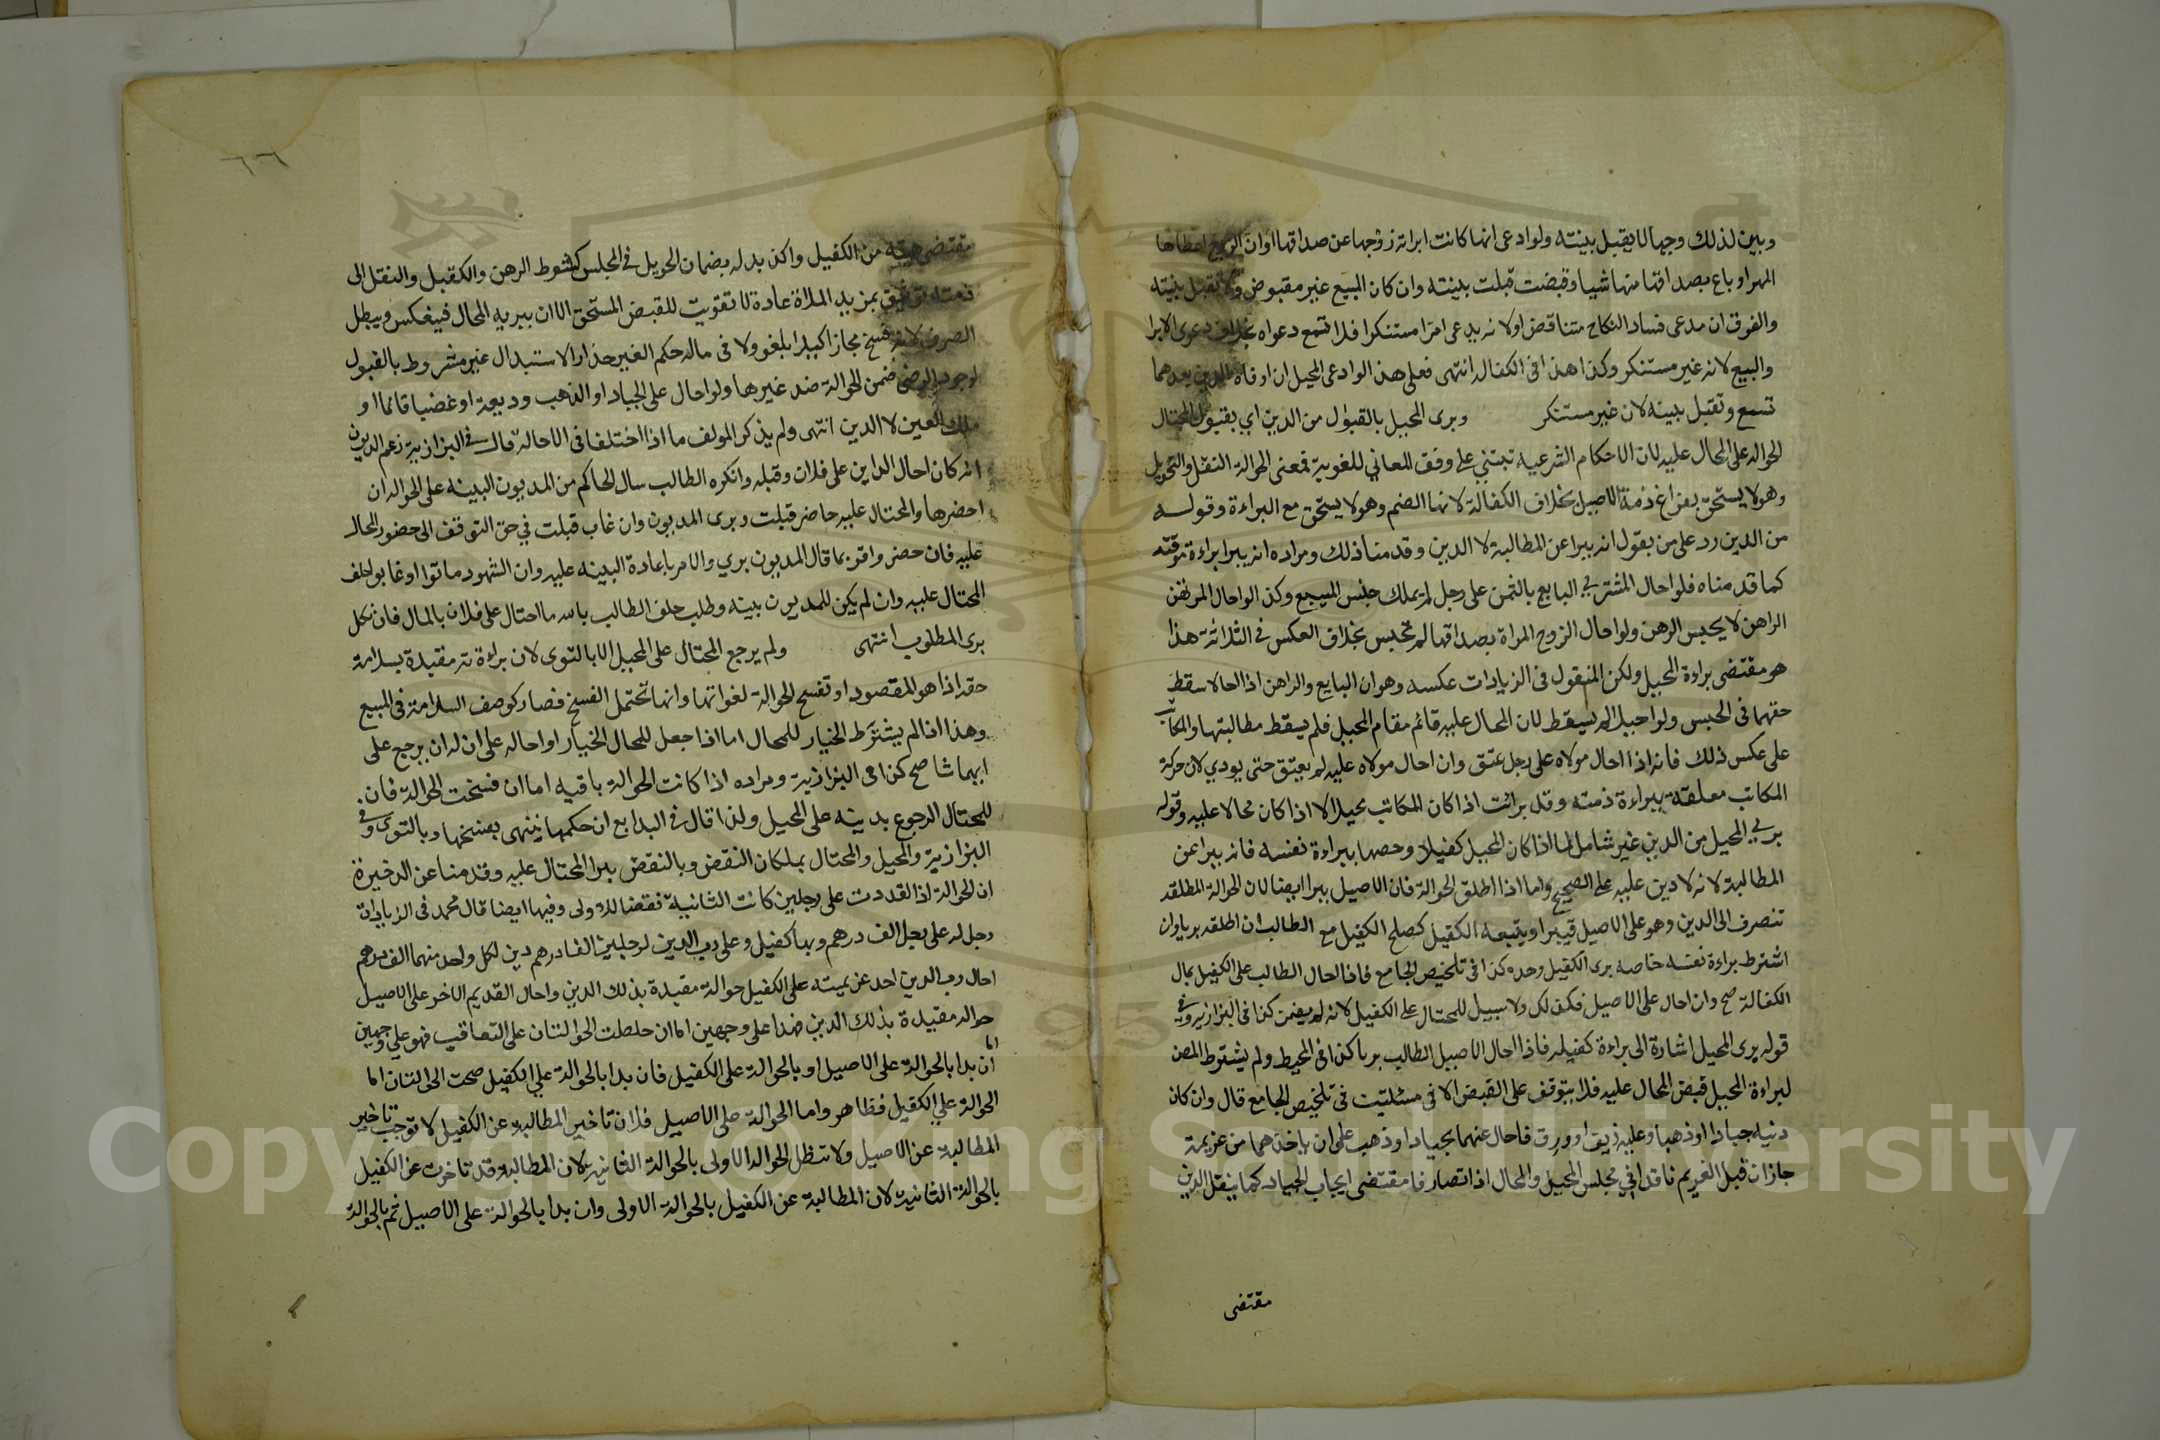 وبين لذلك وجها لا يقبل بينته ولو ادعى انها كانت ابراته زوجها عن صداقها او ان الزوج اعطاها
المهر او باع بصداقها منها شيا وقبضت قبلت بينته وان كان المبيع غير مقبوض ولا تقبل بينته
والفرق ان مدعى فساد النكاح متناقض اولا نه يدعى امرا مستنكرا فلا تسمع دعواه بخلاف دعوى الابرا
والبيع لانه غير مستنكر وكذا هذا فى الكفالة انتهى فعلى هذا لو ادعى المحيل ان اوفاه الدين بعدهما
تسمع وتقبل بينه لان غير مستنكر وبرى المحيل بالقبول من الدين اي بقبول المحتال
الحواله على المحال عليه لان الاحكام الشرعيه تبتني على وفق المعاني اللغويه فمعنى الحوالة النقل والتحويل
وهو لا يستحق بفراغ ذمة الاصيل بخلاف الكفالة لانها الضم وهو لا يستحق مع البراءة وقوله
من الدين رد على من يقول انه يبرا عن المطالبة لا الدين وقدمنا ذلك ومراده انه يبرا براءة موقته
كما قدمناه فلو احال المشتري البايع بالثمن على رجل لم يملك حبس المبيع وكذا لو احال المرتهن
الراهن لا يحبس الرهن ولو احال الزوج المراة بصداقها لم تحبس بخلاف العكس فى الثلاثة هذا
هو مقتضى براءة المحيل ولكن المنقول فى الزيادات عكسه وهو ان البايع والراهن اذا احالا سقط
حقهما فى الحبس ولو احيلا لم يسقط لان المحال عليه قائم مقام المحيل فلم يسقط مطالبتهما والمكاتب
على عكس ذلك فانه اذا احال مولاه على رجل عتق وان احال مولاه عليه لم يعتق حتى يودي لان حرية
المكاتب معلقة ببراءة ذمته وقد برائت اذا كان المكاتب محيلا لا اذا كان محالا عليه وقوله
بري المحيل من الدين غير شامل لما اذا كان المحيل كفيلا وخصها ببراءة نفسه فانه يبرا عن
المطالبة لانه لا دين عليه على الصحيح واما اذا اطلق الحوالة فان الاصيل يبرا ايضا لان الحوالة المطلقه
تنصرف الى الدين وهو على الاصيل فيبرا ويتبعه الكفيل كصلح الكفيل مع الطالب ان اطلقه بريا وان
اشترط براءة نفسه خاصه برى الكفيل وحده كذا فى تلخيص الجامع فاذا احال الطالب على الكفيل بمال
الكفالة صح وان احال على الاصيل فكذلك ولا سبيل للمحتال على الكفيل لانه لم يضمن كذا فى البزازيه وفي
قوله برى المحيل اشارة الى براءة كفيله فاذا احال الاصيل الطالب بريا كذا فى المحيط ولم يشترط المص
لبراءة المحيل قبض المحال عليه فلا يتوقف على القبض الا فى مسئلتين فى تلخيص الجامع قال وان كان
دنيه جيادا او ذهبا وعليه زيف او ورق فاحال عنهما بجياد او ذهب على ان ياخذهما من غريمة
جاز ان قبل الغريم ناقدا في مجلس المحيل والمحال اذا تصارفا مقتضى ايجاب الجياد كما ينقل الدين
مقتضى
٦٦
مقتضى من الكفيل واكن بدله بضمان الحويل فى المجلس كشوط الرهن والكفيل والنقل الى
ذمته بمزيد الملاة عادة لا تفويت للقبض المستحق الا ان يبريه المحال فيعكس ويبطل
الصرف لانه فسخ مجازا كيلا يلغو ولا فى ماله حكم الغير حذار الاستبدال غير مشروط بالقبول
لوجود الرضى ضمن الحوالة ضد غيرها ولو احال على الجياد او الذهب وديعة او غصبا قائما او
ملك العين لا الدين انتهى ولم يذكر المولف ما اذا اختلفا فى الاحالة قال في البزازية زعم المديون
انه كان احال الداين على فلان وقبله وانكره الطالب سال الحاكم من المديون البينه على الحواله ان
احضرها والمحتال عليه حاضر قبلت وبرى المديون وان غاب قبلت في حق التوقف الى حضور المحال
عليه فان حضر واقر بما قال المديون بري والا مر باعادة البينه عليه وان الشهود ماتوا او غابوا حلف
المحتال عليه وان لم يكن للمديون بينه وطلب حلف الطالب بالله ما احتال على فلان بالمال فان نكل
برى المطلوب انتهى ولم يرجع المحتال على المحيل الا بالتوى لان براءة ته مقيدة بسلامة
حقه اذا هو المقصود او تفسح الحوالة لغواتها وانها تحتمل الفسخ فصار كوصف السلامة فى المبيع
وهذا اذا لم يشترط الخيار للمحال اما اذا جعل للمحال الخيار او احاله على ان له ان يرجع على
ايهما شا صح كذا فى البزازية ومراده اذا كانت الحوالة باقيه اما ان فسخت الحوالة فان
للمحتال الرجوع بدينه على المحيل ولذا قال فى البدايع ان حكمها ينتهى بفسخها وبالتوى وفى
البزازية والمحيل والمحتال يملكان النقض وبالنقض يبرا المحتال عليه وقدمنا عن الدخيرة
ان الحوالة اذا تعددت على رجلين كانت الثانية نقضا للاولى وفيها ايضا قال محمد فى الزيادات
رجل له على رجل الف درهم وبها كفيل وعلى رب الدين لرجلين الفا درهم دين لكل واحد منهما الف درهم
احال رب الدين احد غريميه على الكفيل حوالة مقيدة بذلك الدين واحال القديم الاخر على الاصيل
حواله مقيدة بذلك الدين فهذا على وجهين اما ان حصلت الحوالتان على التعاقب فهو علي وجهين
اما
ان بدا بالحوالة على الاصيل او بالحوالة على الكفيل فان بدا بالحوالة علي الكفيل صحت الحوالتان اما
الحوالة علي الكفيل فظاهر واما الحوالة على الاصيل فلان تاخير المطالبة عن الكفيل لا توجب تاخير
المطالبة عن الاصيل ولا تبطل الحواله الاولى بالحوالة الثانية لان المطالبة قد تاخرت عن الكفيل
بالحوالة الثانية لان المطالبة عن الكفيل بالحوالة الاولى وان بدا بالحوالة على الاصيل ثم بالحوالة
Copyright © King Saud University